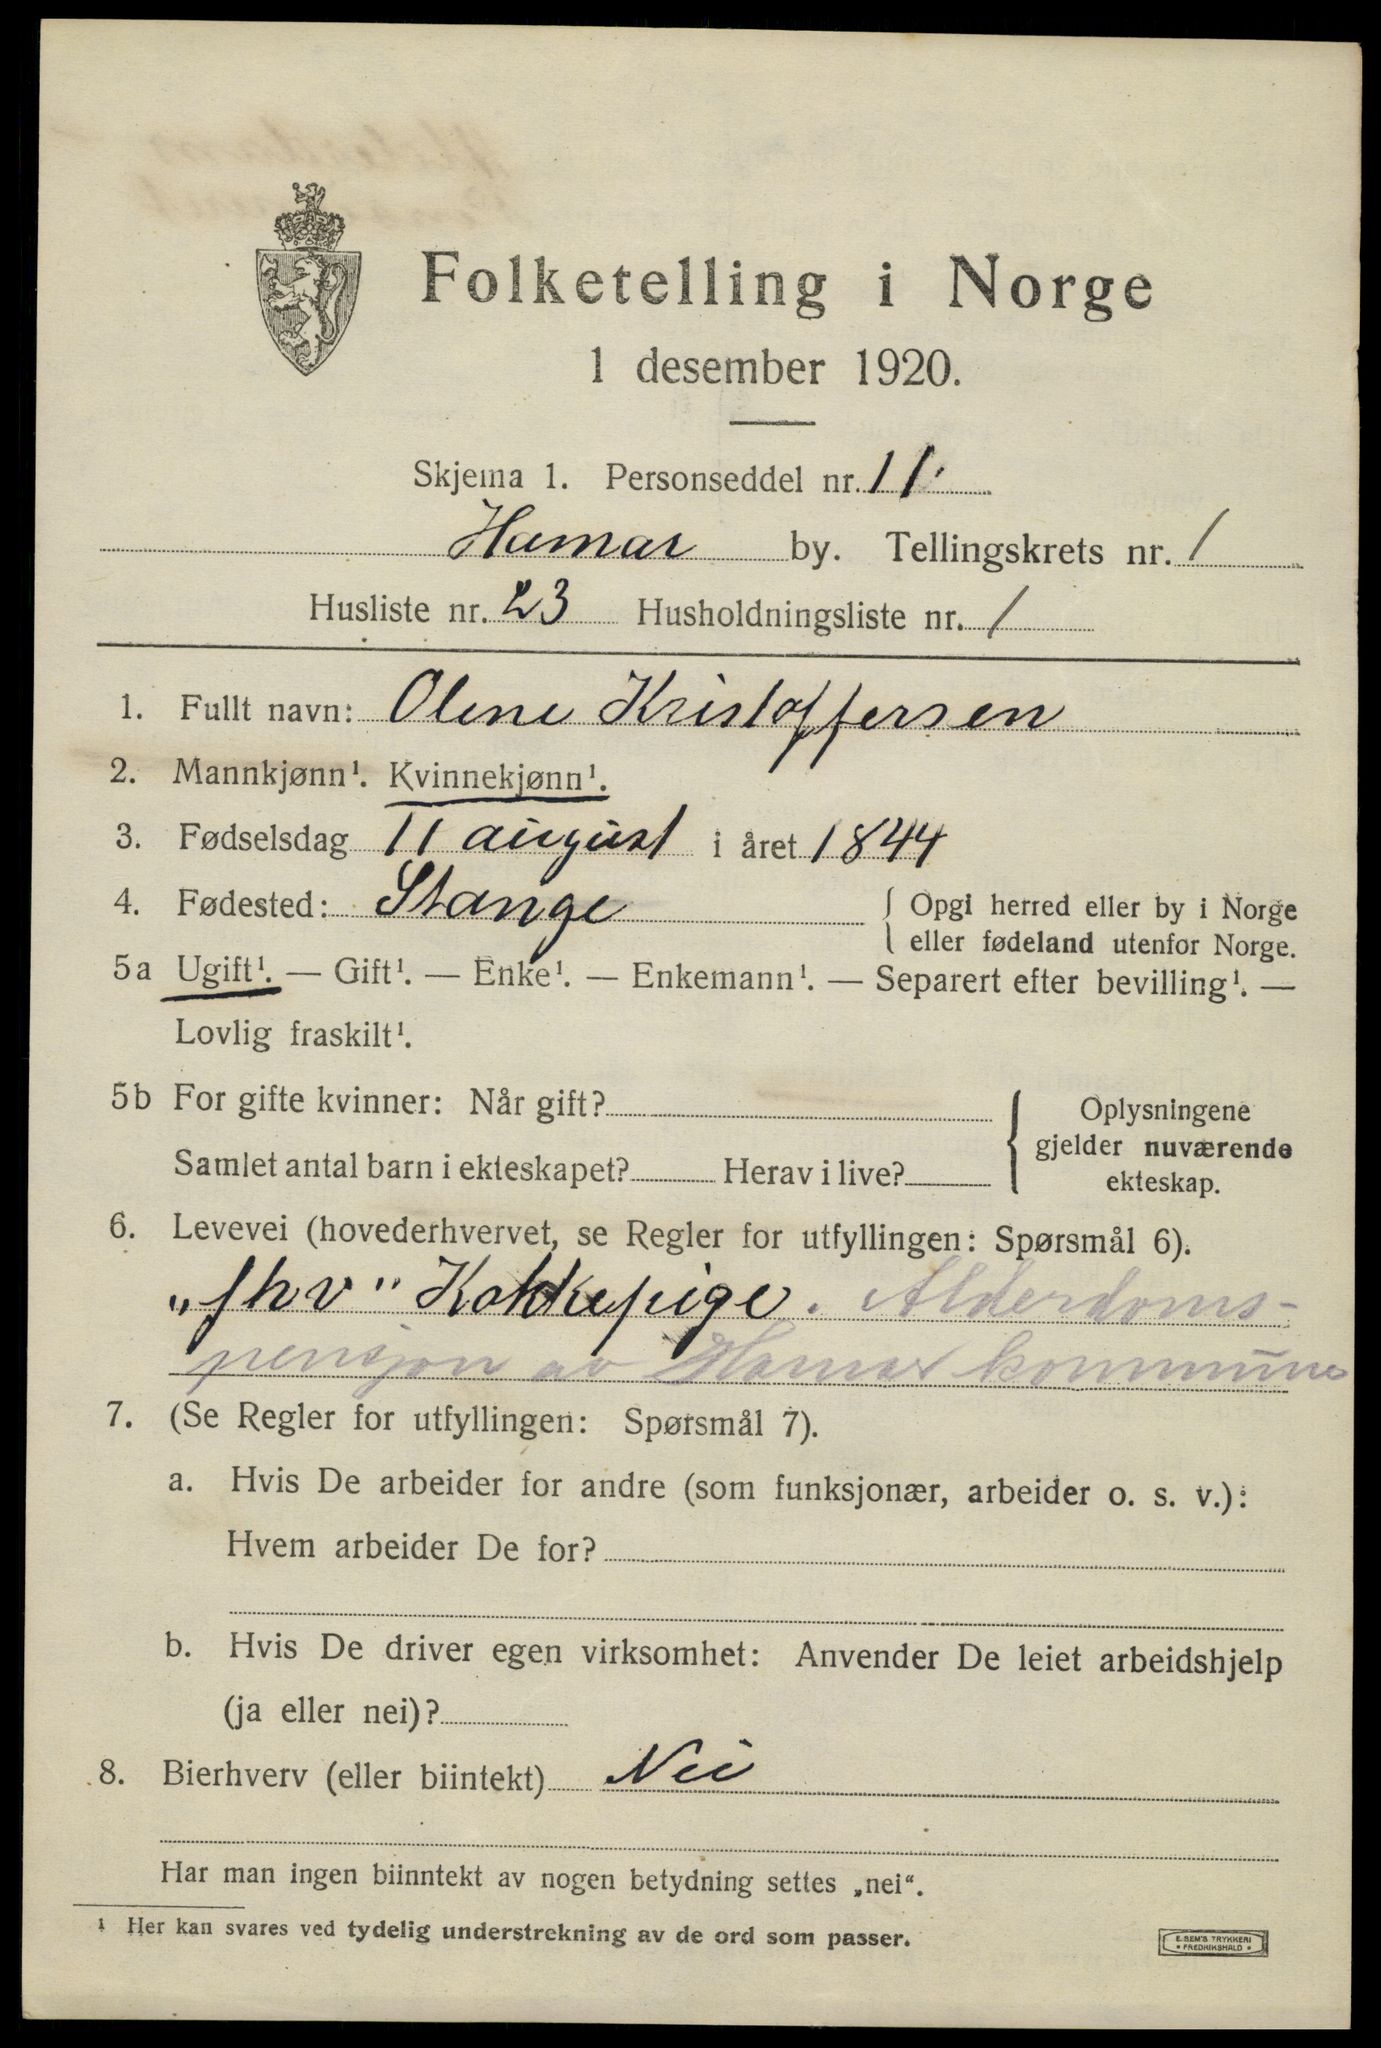 Folketelling i Norge
1 desember 1920.
Skjema 1. Personseddel nr. 11
Hamar by. Tellingskrets nr. 1
Husliste nr. 23 Husholdningsliste nr. 1
1. Fullt navn: Olene Kristoffersen
2. Mannkjønn¹. Kvinnekjønn¹.
3. Fødselsdag 11 august i året 1844
4. Fødested: Stange { Opgi herred eller by i Norge
eller fødeland utenfor Norge.
5a Ugift¹. — Gift¹. — Enke¹. — Enkemann¹. — Separert efter bevilling¹. —
Lovlig fraskilt¹.
5b For gifte kvinner: Når gift? { Oplysningene
gjelder nuværende
Samlet antal barn i ekteskapet? Herav i live? ekteskap.
6. Levevei (hovederhvervet, se Regler for utfyllingen: Spørsmål 6).
„fhv" Kokkepige. Alderdoms-
pensjon av Hamar kommune
7. (Se Regler for utfyllingen: Spørsmål 7).
a. Hvis De arbeider for andre (som funksjonær, arbeider o. s. v.):
Hvem arbeider De for?
b. Hvis De driver egen virksomhet: Anvender De leiet arbeidshjelp
(ja eller nei)?
8. Bierhverv (eller biintekt) Nei
Har man ingen biinntekt av nogen betydning settes „nei“.
¹ Her kan svares ved tydelig understrekning av de ord som passer.
E. SEM'S TRYKKERI
• FREDRIKSHALD •